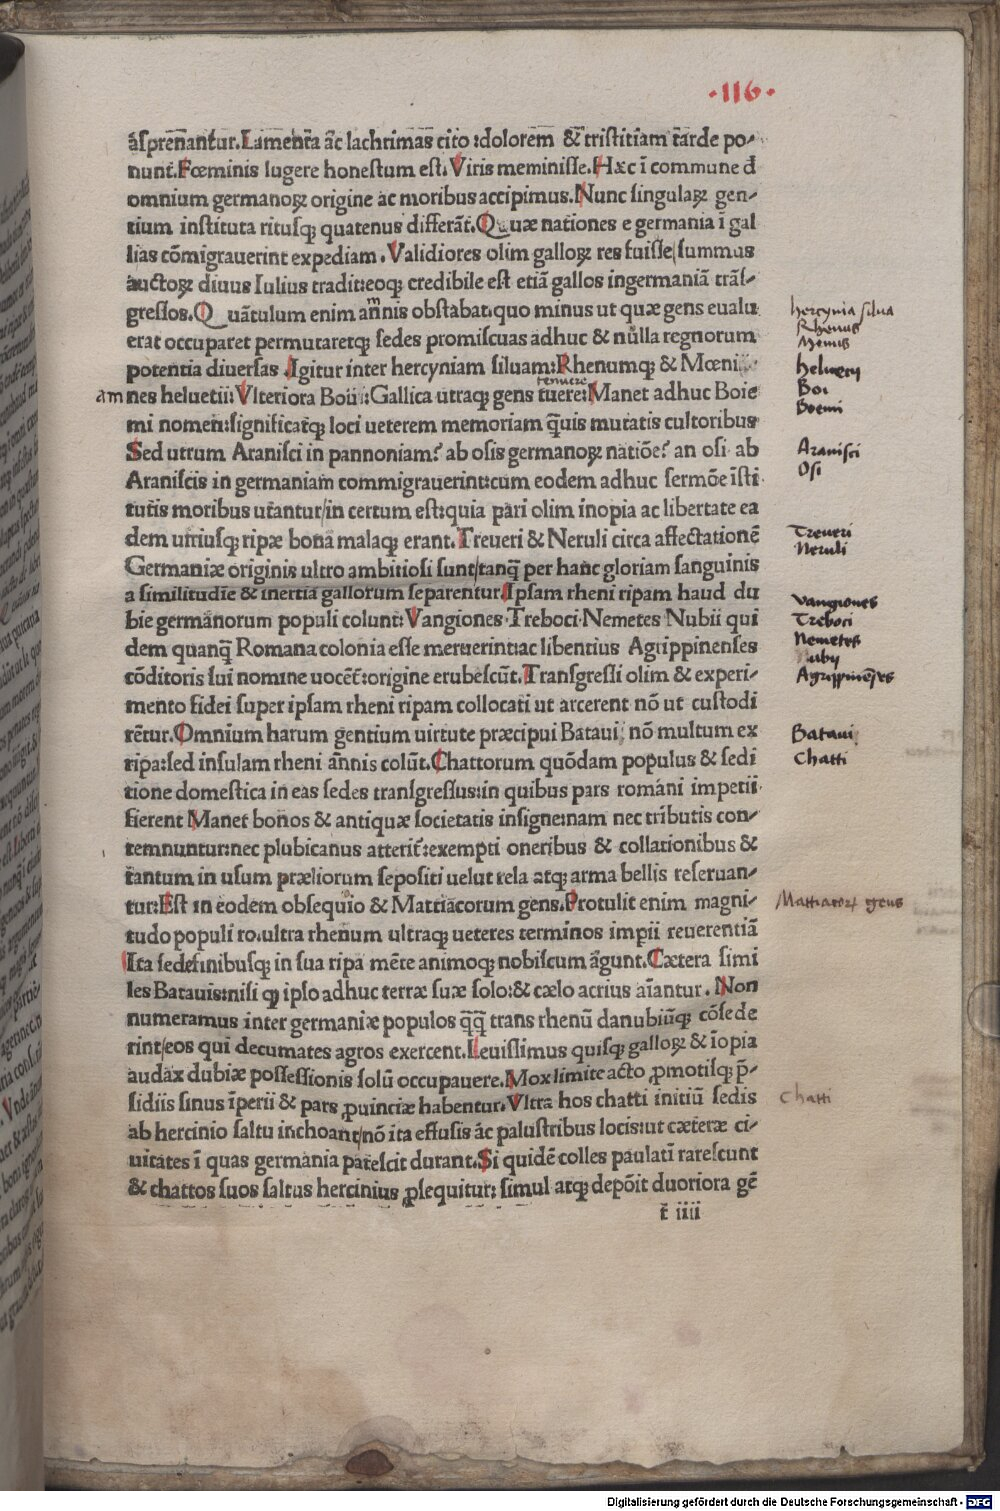 ·116·
aſprenant̄ur.Lamenta ac̄ lachrimas cito :dolorem &̄ triſtitiam tarde po-
nunt̄.Fœminis lugere honeſtum eſt.Viris meminiſſe.Hæc ī commune d̄
omnium germanoꝝ origine ac moribus accipimus.Nunc ſingulaꝝ gen-
tium inſtituta rituſqꝫ quatenus differāt.Quæ nationes e germania ī gal
lias cōmigrauerint expediam.Validiores olim galloꝝ res fuiſſe/ſummus
auctoꝝ diuus Iulius tradit:eoqꝫ credibile eſt etiā gallos ingermaniā trāſ-
greſſos.Quātulum enim amnis obſtabat:quo minus ut quæ gens eualu
erat occuparet permutaretqꝫ ſedes promiſcuas adhuc & nulla regnorum
potentia diuerſas.Igitur inter hercyniam ſiluam:Rhenumqꝫ & Mœni
am nes heluetii:Vlteriora Boii:Gallica utraqꝫ gens tuere:Manet adhuc Boie
tenuere
mi nomen:ſignificatqꝫ loci ueterem memoriam q̄uis mutatis cultoribus
Sed utrum Araniſci in pannoniam? ab oſis germanoꝝ natiōe? an oſi ab
Araniſcis in germaniam commigrauerint:cum eodem adhuc ſermōe īſti
tutis moribus utantur/in certum eſt:quia pari olim inopia ac libertate ea
dem utriuſqꝫ ripæ bona malaqꝫ erant.Treueri & Neruli circa affectationē
Germaniæ originis ultro ambitioſi ſunt/tanq̄ per hanc gloriam ſanguinis
a ſimilitudīe & inertia gallorum ſeparentur.Ipſam rheni ripam haud du
bie germanorum populi colunt:Vangiones·Treboci·Nemetes Nubii qui
dem quanq̄ Romana colonia eſſe meruerint:ac libentius Agrippinenſes
cōditoris ſui nomine uocēt̄:origine erubeſcūt.Tranſgreſſi olim & experi-
mento fidei ſuper ipſam rheni ripam collocati ut arcerent nō ut cuſtodi
rētur.Omnium harum gentium uirtute præcipui Bataui nō multum ex
ripa:ſed inſulam rheni amnis colūt.Chattorum quōdam populus & ſedi
tione domeſtica in eas ſedes tranſgreſſus:in quibus pars romāni impetii
fierent Manet bonos & antiquæ ſocietatis inſigne:nam nec tributis con-
temnuntur:nec plubicanus atterit̄:exempti oneribus & collationibus &
tantum in uſum præliorum ſepoſiti uelut tela atqꝫ arma bellis reſeruan-
tur:Eſt in eodem obſequio & Mattiacorum gens.Protulit enim magni-
tudo populi ro.ultra rhenum ultraqꝫ ueteres terminos impii reuerentiā
Ita ſedefinibuſqꝫ in ſua ripa mēte animoqꝫ nobiſcum agunt.Cætera ſimi
les Batauis:niſi ꝙ ipſo adhuc terræ ſuæ ſolo:& cælo acrius aīantur.Non
numeramus inter germaniæ populos q̄q̄ trans rhenū danubiūqꝫ cōſede
rint/eos qui decumates agros exercent.Leuiſſimus quiſqꝫ galloꝝ & īopia
audax dubiæ poſſeſſionis ſolū occupauere.Mox limite acto ꝓmotiſqꝫ p̄-
ſidiis ſinus īperii & pars ꝓuinciæ habentur.Vltra hos chatti initiū ſedis
ab hercinio ſaltu inchoant/nō ita effuſis ac paluſtribus locis:ut cæteræ ci-
uitates ī quas germania pateſcit durant.Si quidē colles paulatī rareſcunt
& chattos ſuos ſaltus hercinius ꝓſequitur: ſimul atqꝫ depōit duoriora gē
t iiii
hercynia ſilua
Rhenus
Menus
Heluetij
Boi
Boemi
Araniſci
Oſi
Treueri
Neruli
Vangiones
Treboci
Nemetes
Nuby
Agrippinēſes
Bataui
Chatti
Mattiacoꝝ gens
Chatti
Digitalisierung gefördert durch die Deutsche Forschungsgemeinschaft - DFG